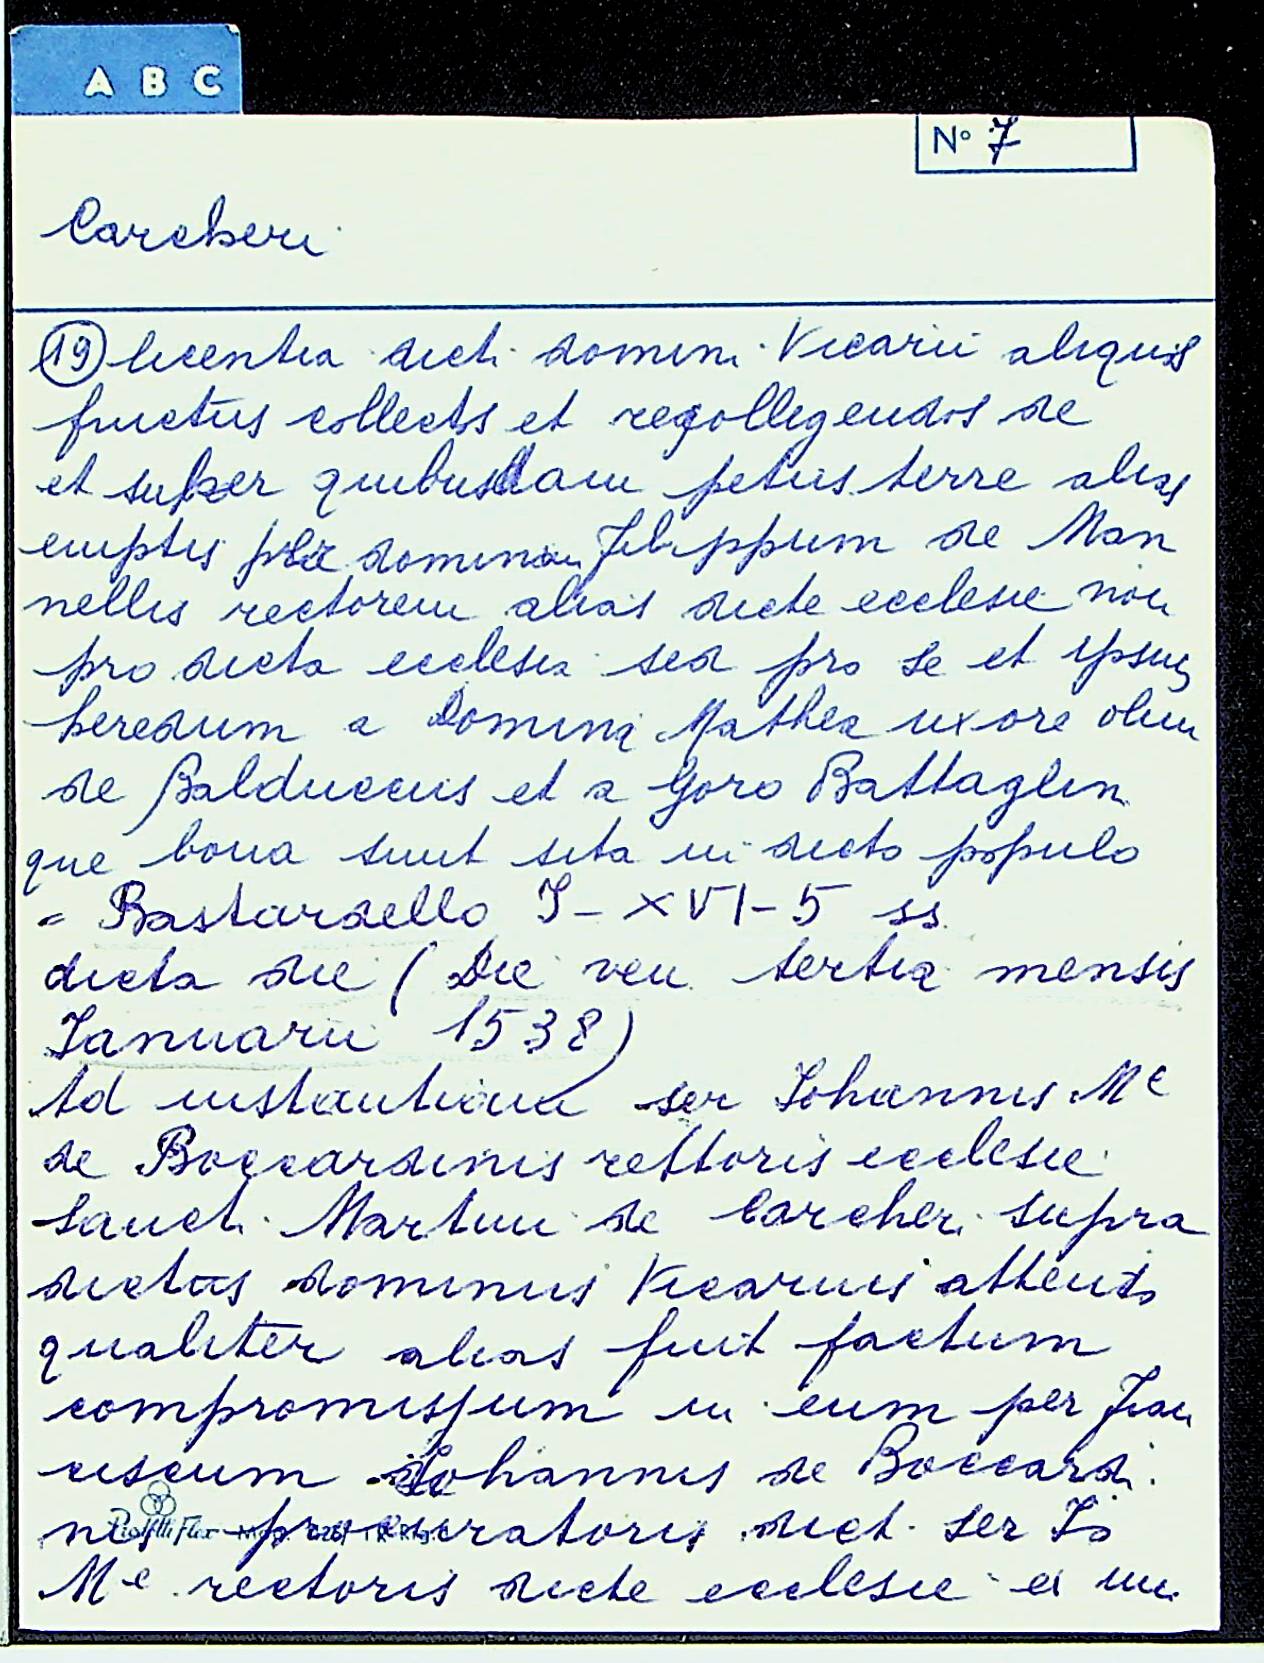 A B C
N° 7
Carcheri
19 licentia dicti domini Vicarii aliquis
fructus collectos et recollegendos de
et super quibusdam petiis terre alias
emptis per dominum Filippum de Man
nellis rectorem alias dicte ecclesie non
pro dicta ecclesia sed pro se et ipsius
heredum a Domina Mathea uxore olim
de Balduccius et a Goro Battaglin
que bona sunt sita in dicto populo
= Bastardello I - XVI - 5 ss
dicta die ( Die ven tertia mensis
Ianuarii 1538)
Ad instantiam ser Iohannis Me
de Boccardinis rettoris ecclesie
Sancti Martini de Carcheri supra
dictus dominus Vicarius attento
qualiter alias fuit factum
compromissum in eum per Fran
ciscum Iohannis de Boccardi
nis procuratoris dicti ser Io
Me rectoris dicte ecclesie ex un